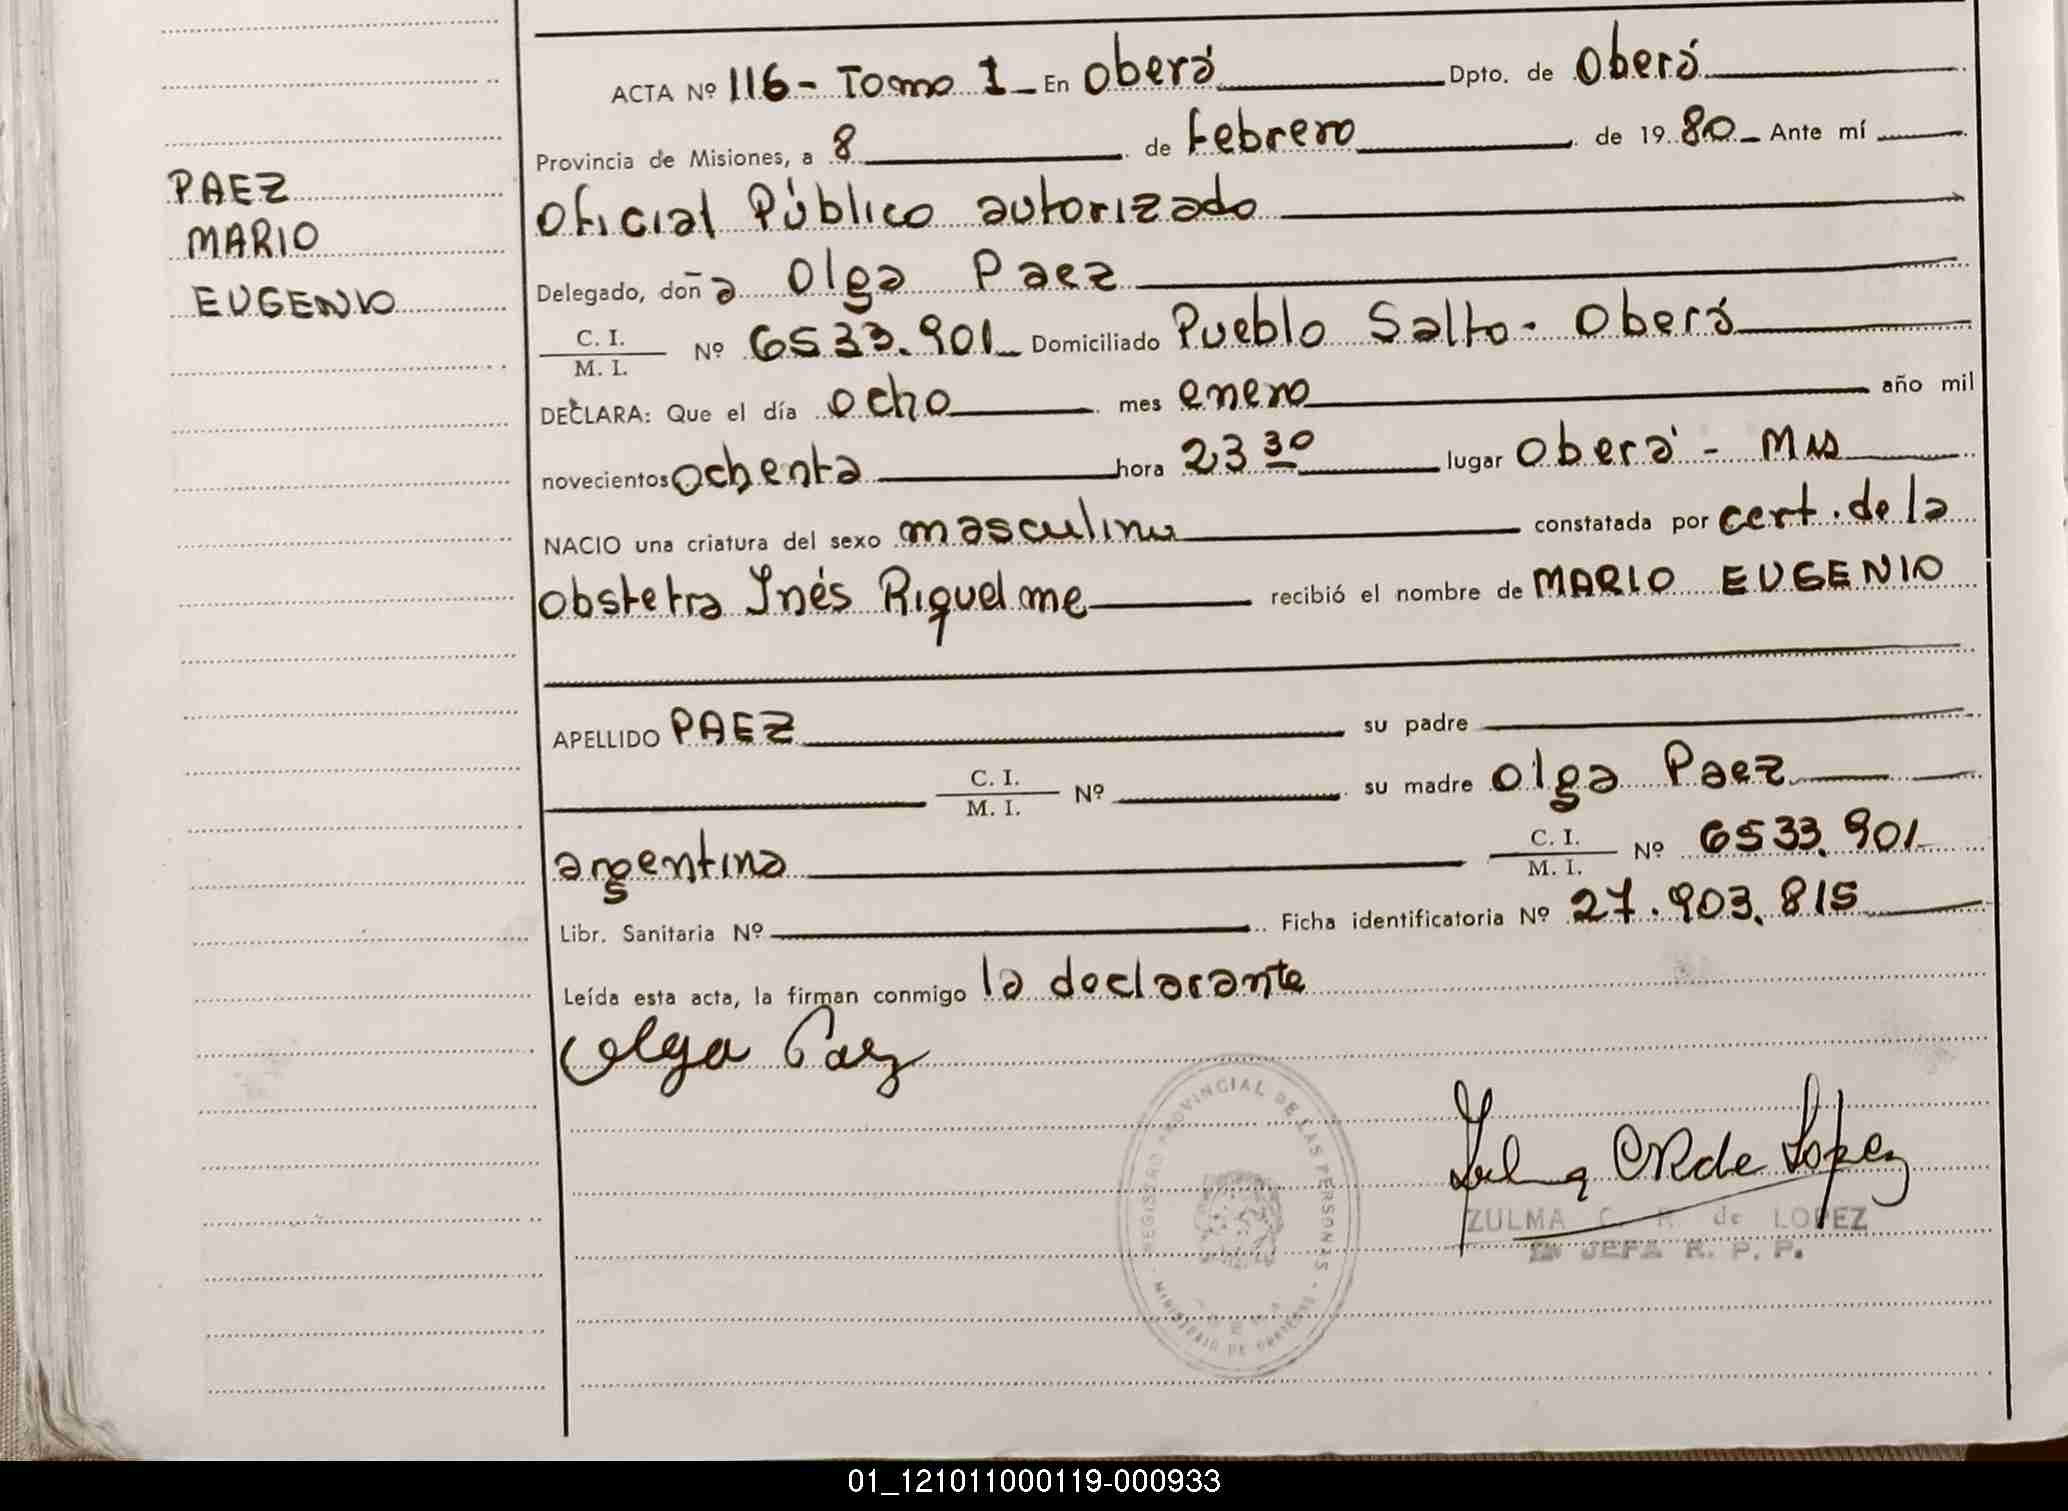 PAEZ
MARIO
EUGENIO
ACTA Nº 116 - Tomo 1 - En Oberá Dpto. de Oberá
Provincia de Misiones, a 8 de Febrero de 1980 - Ante mí
Oficial Público autorizado
Delegado, doña Olga Paez
C. I. / M. I. Nº 6533.901 Domiciliado Pueblo Salto - Oberá
DECLARA: Que el día ocho mes enero año mil
novecientos ochenta hora 23 30 lugar Oberá - Mis
NACIO una criatura del sexo masculino constatada por cert. de la
obstetra Inés Riquelme recibió el nombre de MARIO EUGENIO
APELLIDO PAEZ su padre
C. I. / M. I. Nº su madre Olga Paez
argentina C. I. / M. I. Nº 6533.901
Libr. Sanitaria Nº Ficha identificatoria Nº 27.903.815
Leída esta acta, la firman conmigo la declarante
Olga Paez
REGISTRO PROVINCIAL DE LAS PERSONAS - MINISTERIO DE
Zulma CR de Lopez
ZULMA C. R. de LOPEZ
JEFA R. P. P.
01_121011000119-000933